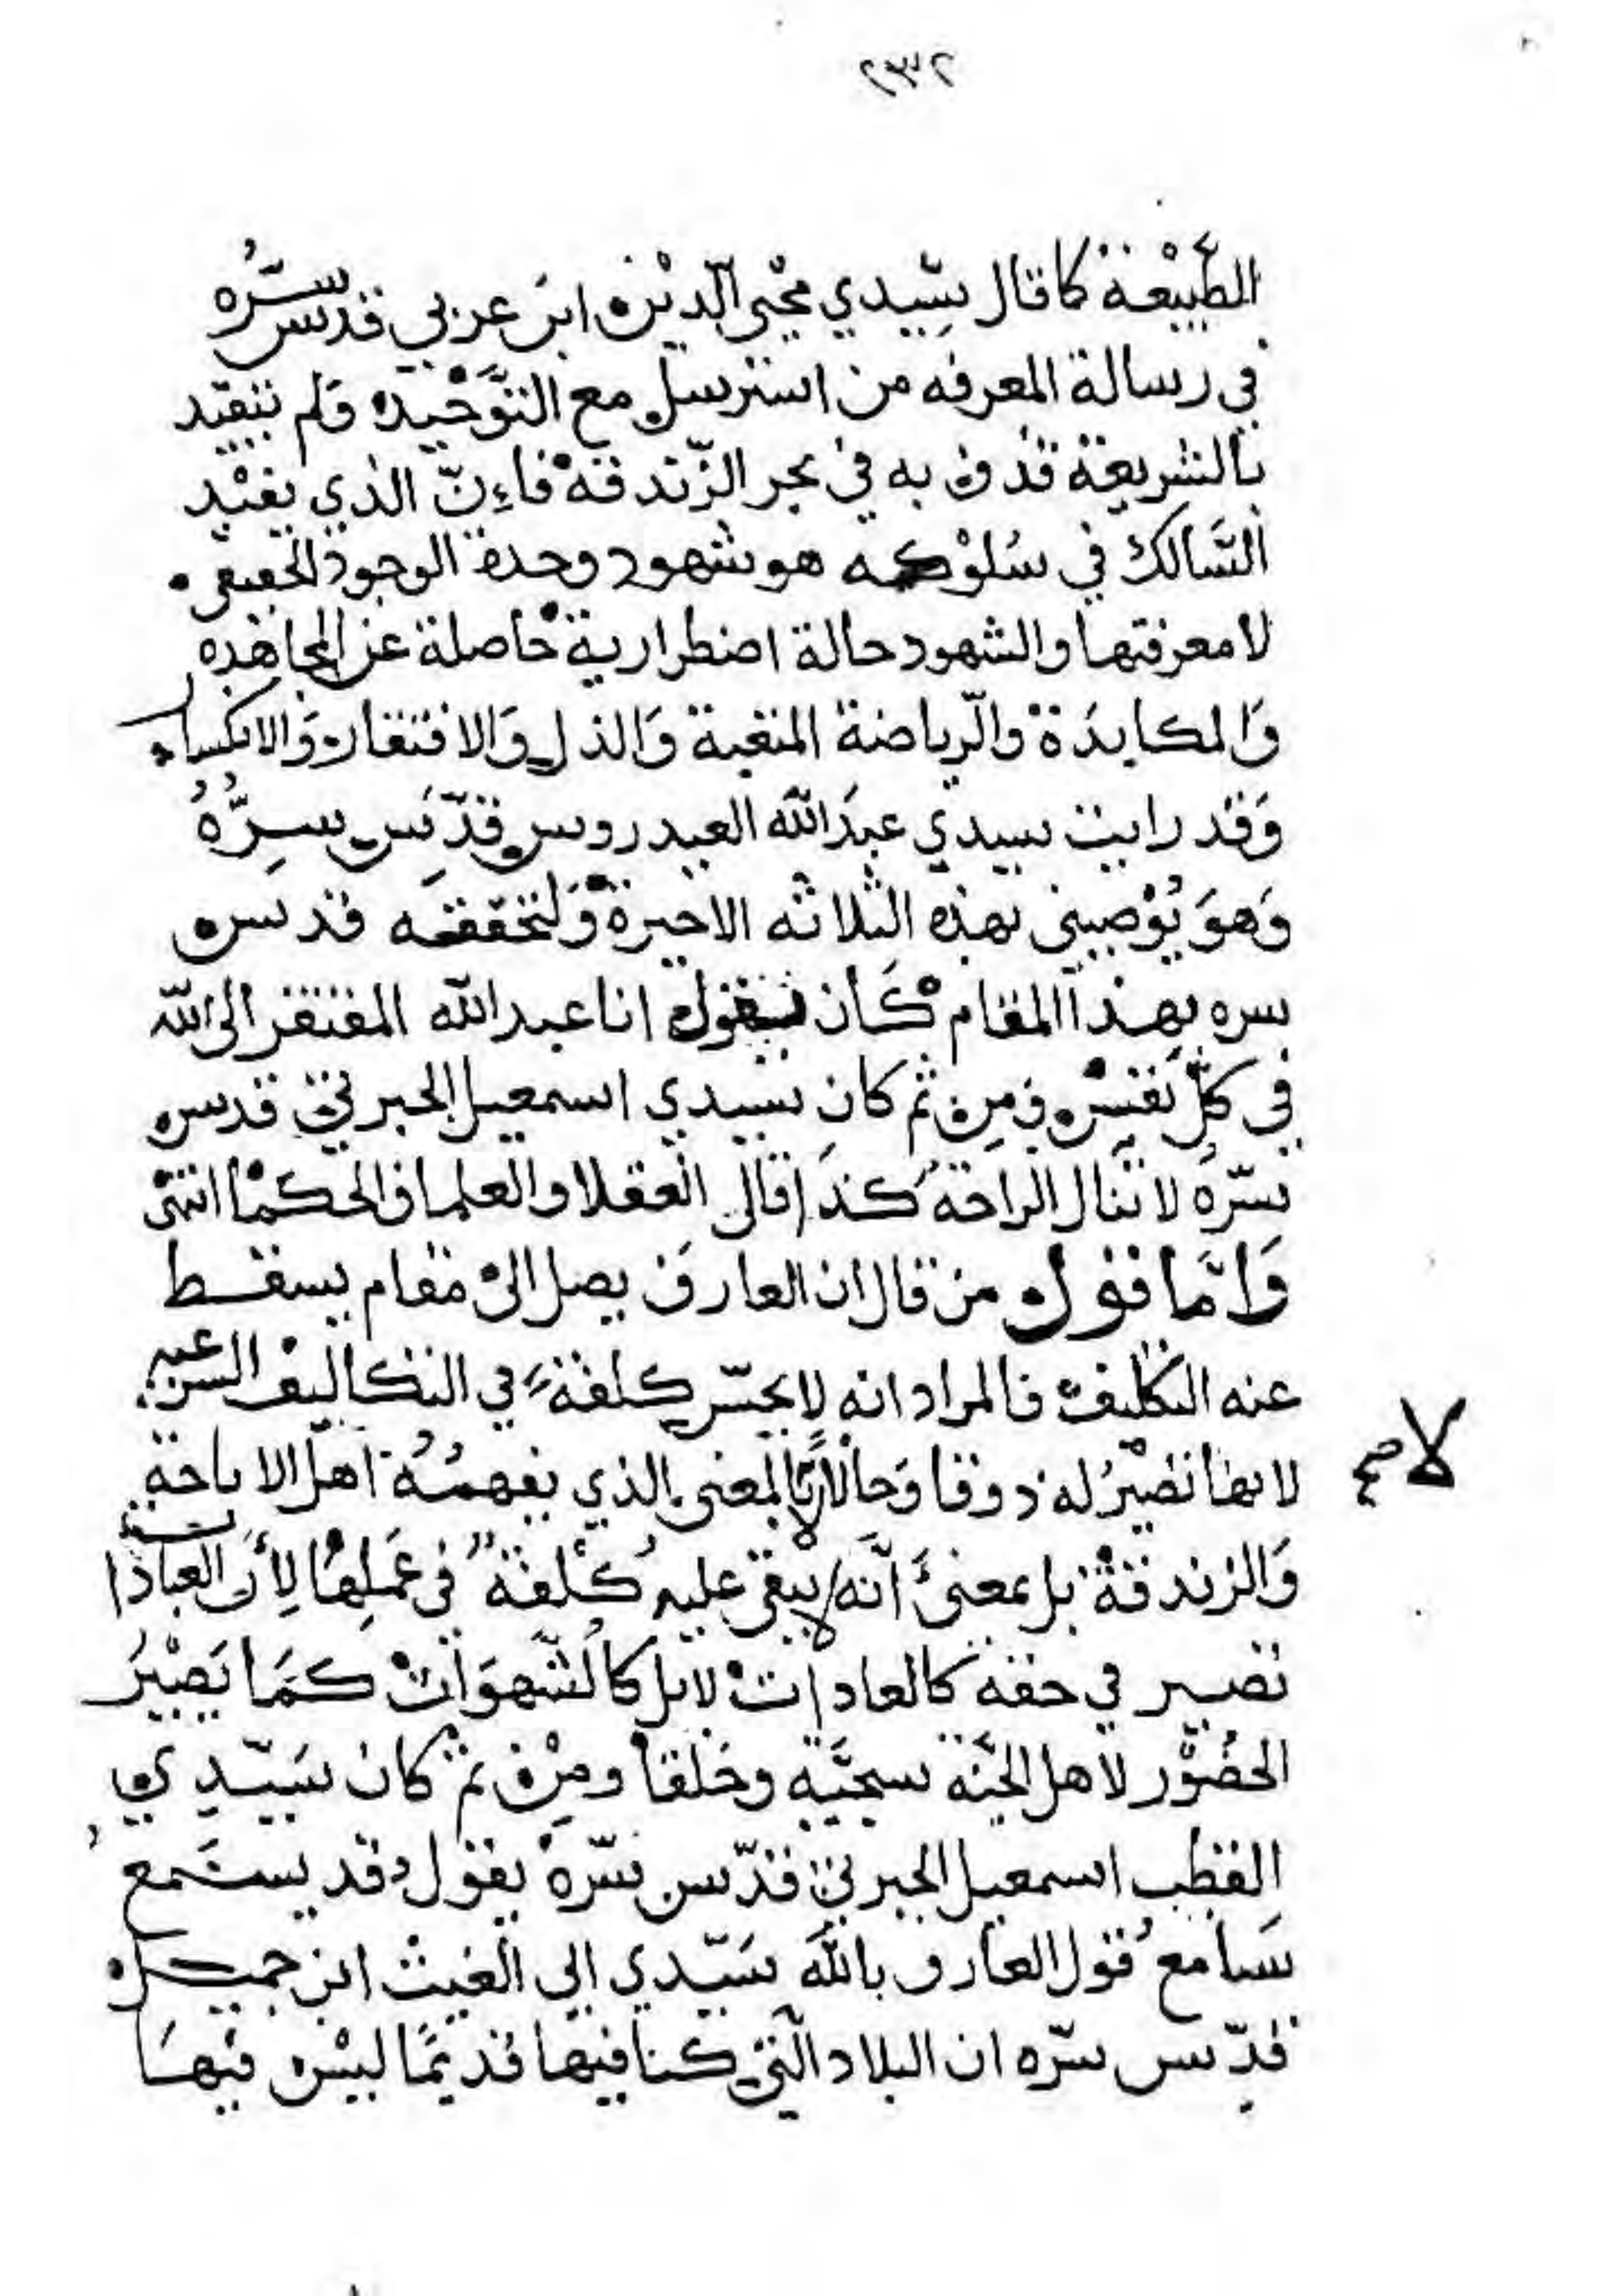 ٢٣٢
الطَّبِيْعة كما قال سيّدي محْيى الدّيْن ابن عربي قدس سرّه
في رسالة المعرفه من استرسل مع التَّوَحْيد ولم يتقيّد
بالشريعة قذف به في بحر الزّندقة فاءِنّ الذي يفيْد
السَّالك في سُلوْكه هو شهود وحدة الوجود الحقيقى
لا معرفتها والشهود حالة اضطرارية حاصلة عن المجاهده
وَالمكابدَة والرّياضة المتعبة وَالذل وَالافتقار وَالانكسار
وَقد رايت سيدي عبدَالله العيدروس قدّسَ سِرُّهُ
وَهوَ يُوْصيني بهذه الثلاثه الاخيرة وَلتحققه قدس
سره بهذا المقام كَان يقول انا عبد الله المفتقر الى الله
في كلّ نَفَسْ ومِن ثم كان سيدي اسمعيل الجبرتي قدس
سرّهُ لا تنال الراحة كذَا قال العقلا والعلما والحكمْا انتهى
وَامَّا قول من قال ان العارف يصل الى مقام يسقط
عنه التكليف فالمراد انه لا يحسّ كلفةً في التكاليف الشرعيه
لانها تصْيرُ له ذوقا وَحالًا لا بالمعنى الذي يفهمُهُ اهل الاباحة
وَالزندقة بل بمعنىَ اَنَّه لا يبقى عليه كُلْفَة في عَملِهَا لِأَن العبادات
تصير في حقه كالعادات لا بل كالشّهوَات كمَا يَصْيرُ
الحُضُوْر لاهل الجنَّة سجيَّة وخلقا ومِنْ ثم كان سَيّدِي
القطب اسمعيل الجبرتي قدّس سرّه يقول وقد يستَمع
سَامع قول العارف بالله سَيّدي ابي الغيث ابن جميل
قدّس سرّه ان البلاد الّتي كنا فيها قديمًا ليْس فيهَا
لا صح